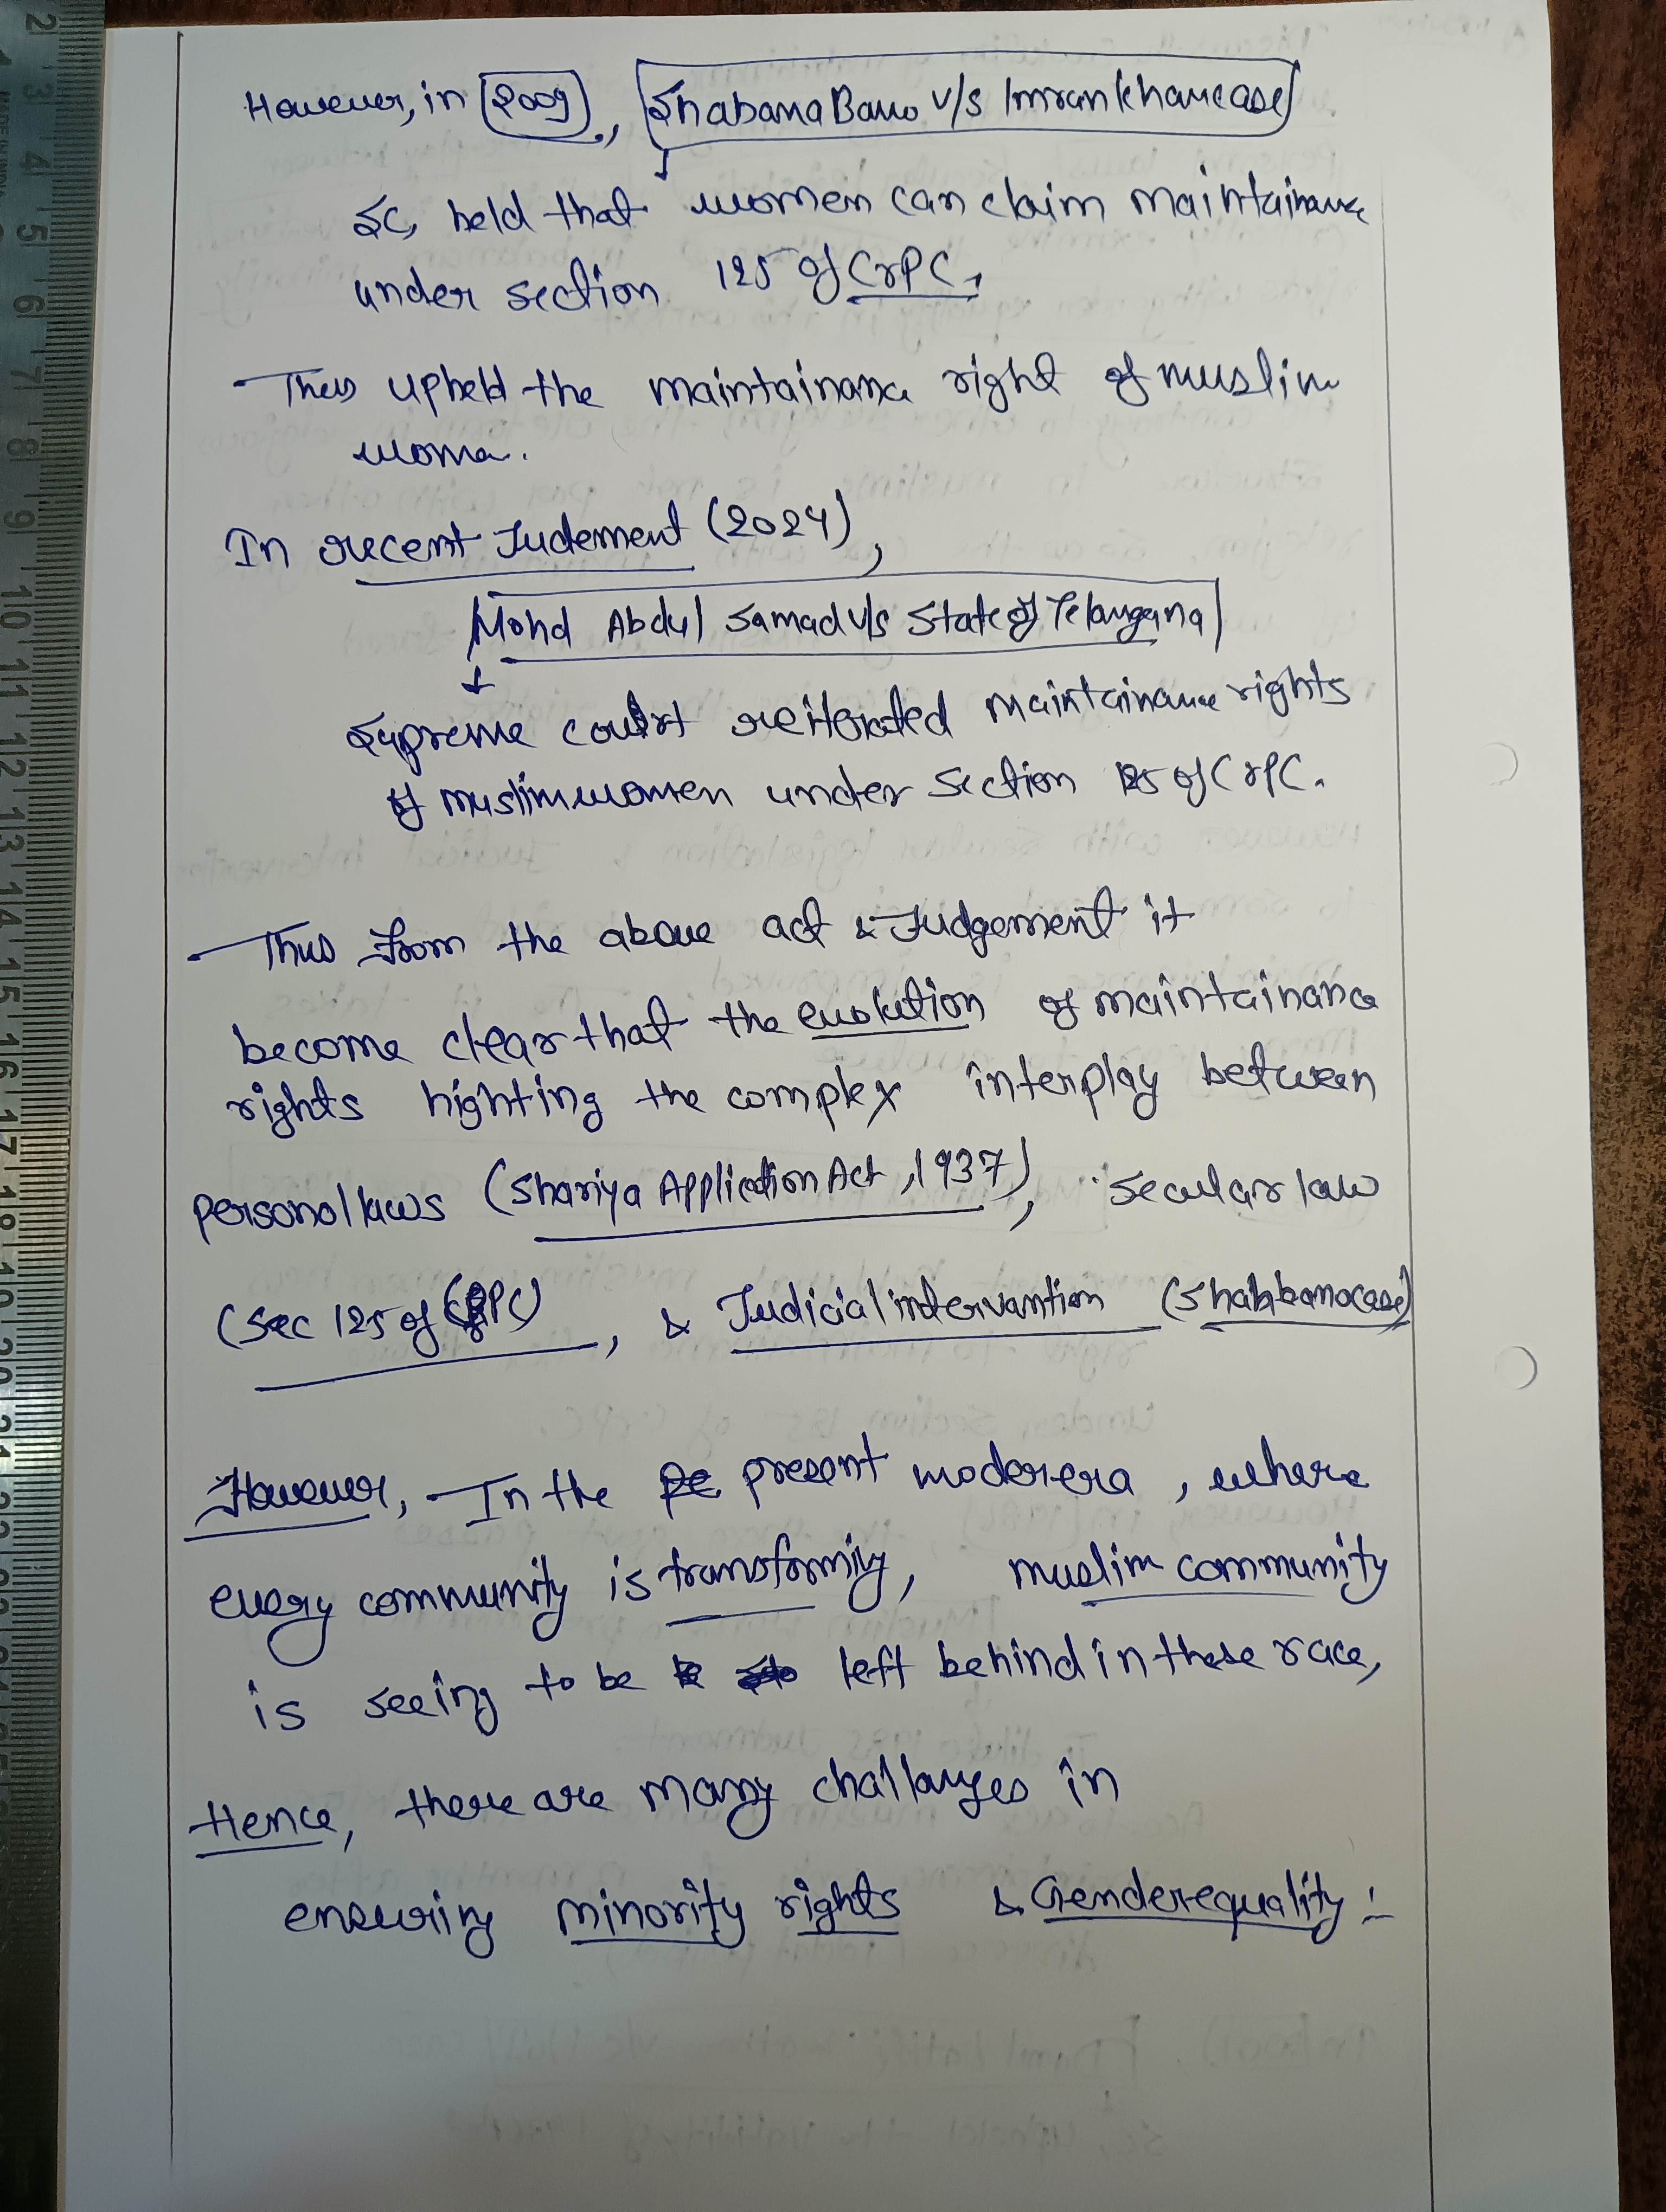 However, in 2009, Shabana Bano v/s Imran khan case
SC, held that women can claim maintainance
under section 125 of CrPC,
Thus upheld the maintainance right of muslim
woma.
In recent Judement (2024),
Mohd Abdul Samad v/s State of Telangana
Supreme court reiterated maintainance rights
of muslim women under Section 125 of CrPC.
Thus from the above act & Judgement it
become clear that the evolution of maintainance
rights highting the complex interplay between
personal laws (Shariya Application Act, 1937), secular law
(Sec 125 of CrPC), & Judicial intervantion (Shahbano case)
However, In the present moder era, where
every community is transforming, muslim community
is seeing to be left behind in these race,
Hence, there are many challanges in
ensuring minority rights & Gender equality :-